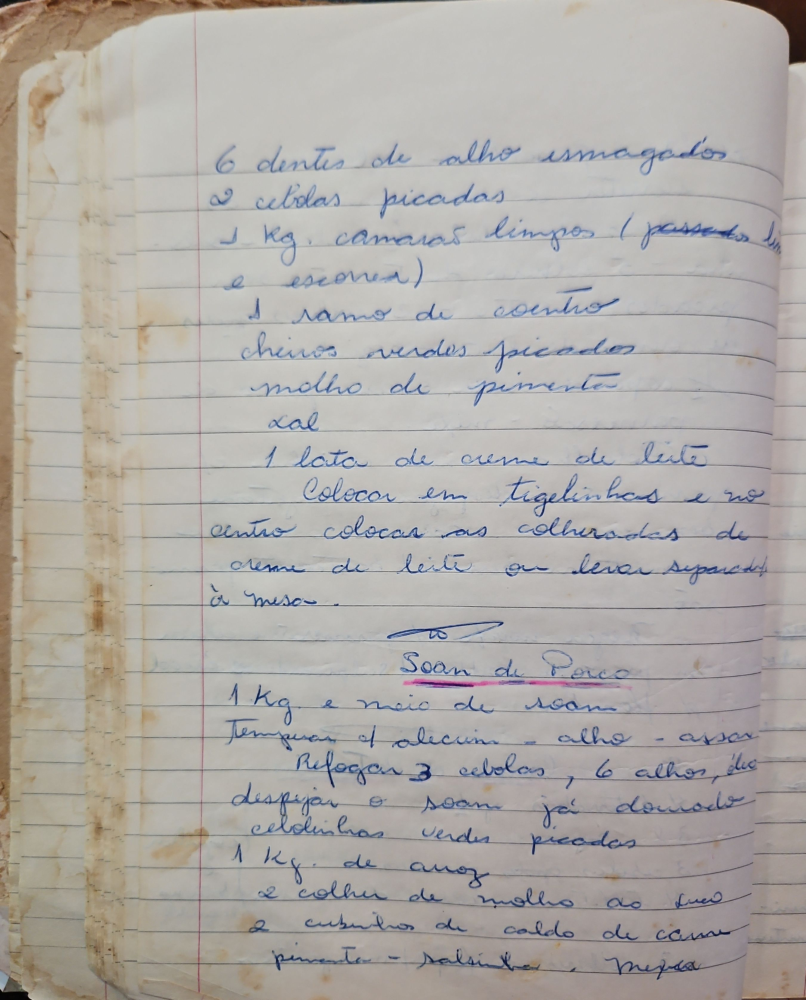 6 dentes de alho esmagados
2 cebolas picadas
1 Kg. camarão limpos (passados
e escorrer)
1 ramo de coentro
cheiros verdes picados
molho de pimenta
sal
1 lata de creme de leite
Colocar em tigelinhas e no
centro colocar as colheradas de
creme de leite ou levar separado
à mesa.
Soan de Porco
1 Kg e meio de soan
Temperar c/ alecrim - alho - assar
Refogar 3 cebolas, 6 alhos, óleo
despejar o soan já dourado
cebolinhas verdes picadas
1 Kg. de arroz
2 colher de molho ao suco
2 cubinhos de caldo de carne
pimenta - salsinha. Mexer